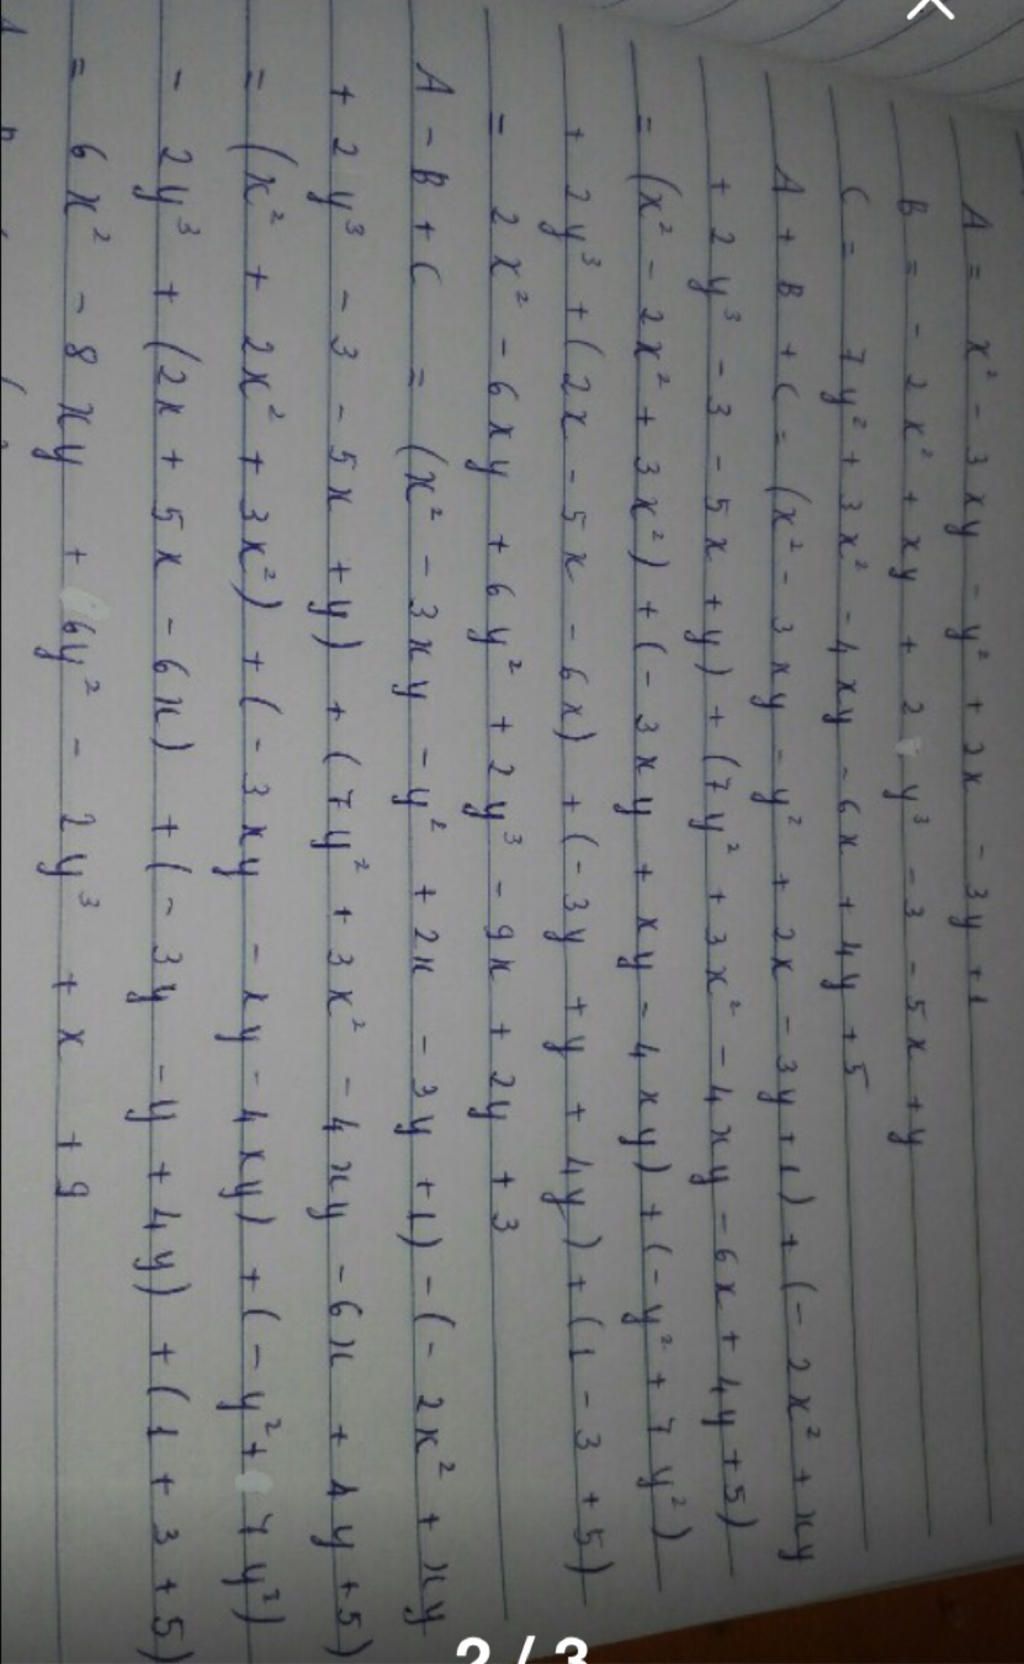 A = x² - 3xy - y² + 2x - 3y + 1
B = - 2x² + xy + 2y³ - 3 - 5x + y
C = 7y² + 3x² - 4xy - 6x + 4y + 5
A + B + C = (x² - 3xy - y² + 2x - 3y + 1) + (- 2x² + xy
+ 2y³ - 3 - 5x + y) + (7y² + 3x² - 4xy - 6x + 4y + 5)
= (x² - 2x² + 3x²) + (- 3xy + xy - 4xy) + (- y² + 7y²)
+ 2y³ + (2x - 5x - 6x) + (- 3y + y + 4y) + (1 - 3 + 5)
= 2x² - 6xy + 6y² + 2y³ - 9x + 2y + 3
A - B + C = (x² - 3xy - y² + 2x - 3y + 1) - (- 2x² + xy
+ 2y³ - 3 - 5x + y) + (7y² + 3x² - 4xy - 6x + 4y + 5)
= (x² + 2x² + 3x²) + (- 3xy - xy - 4xy) + (- y² + 7y²)
- 2y³ + (2x + 5x - 6x) + (- 3y - y + 4y) + (1 + 3 + 5)
= 6x² - 8xy + 6y² - 2y³ + x + 9
2 / 3